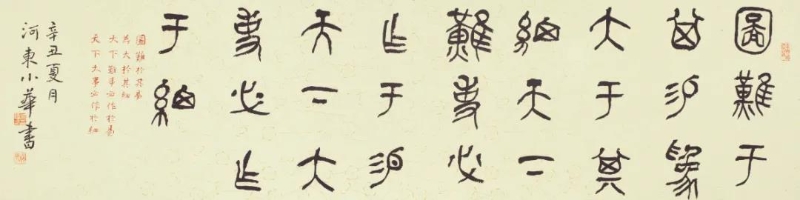 圖難于
其易為
大于其
細天下
難事必
作于易
天下大
事必作
于細
圖難於其易
為大於其細
天下難事必作於易
天下大事必作於細
辛丑夏月
河東小華書